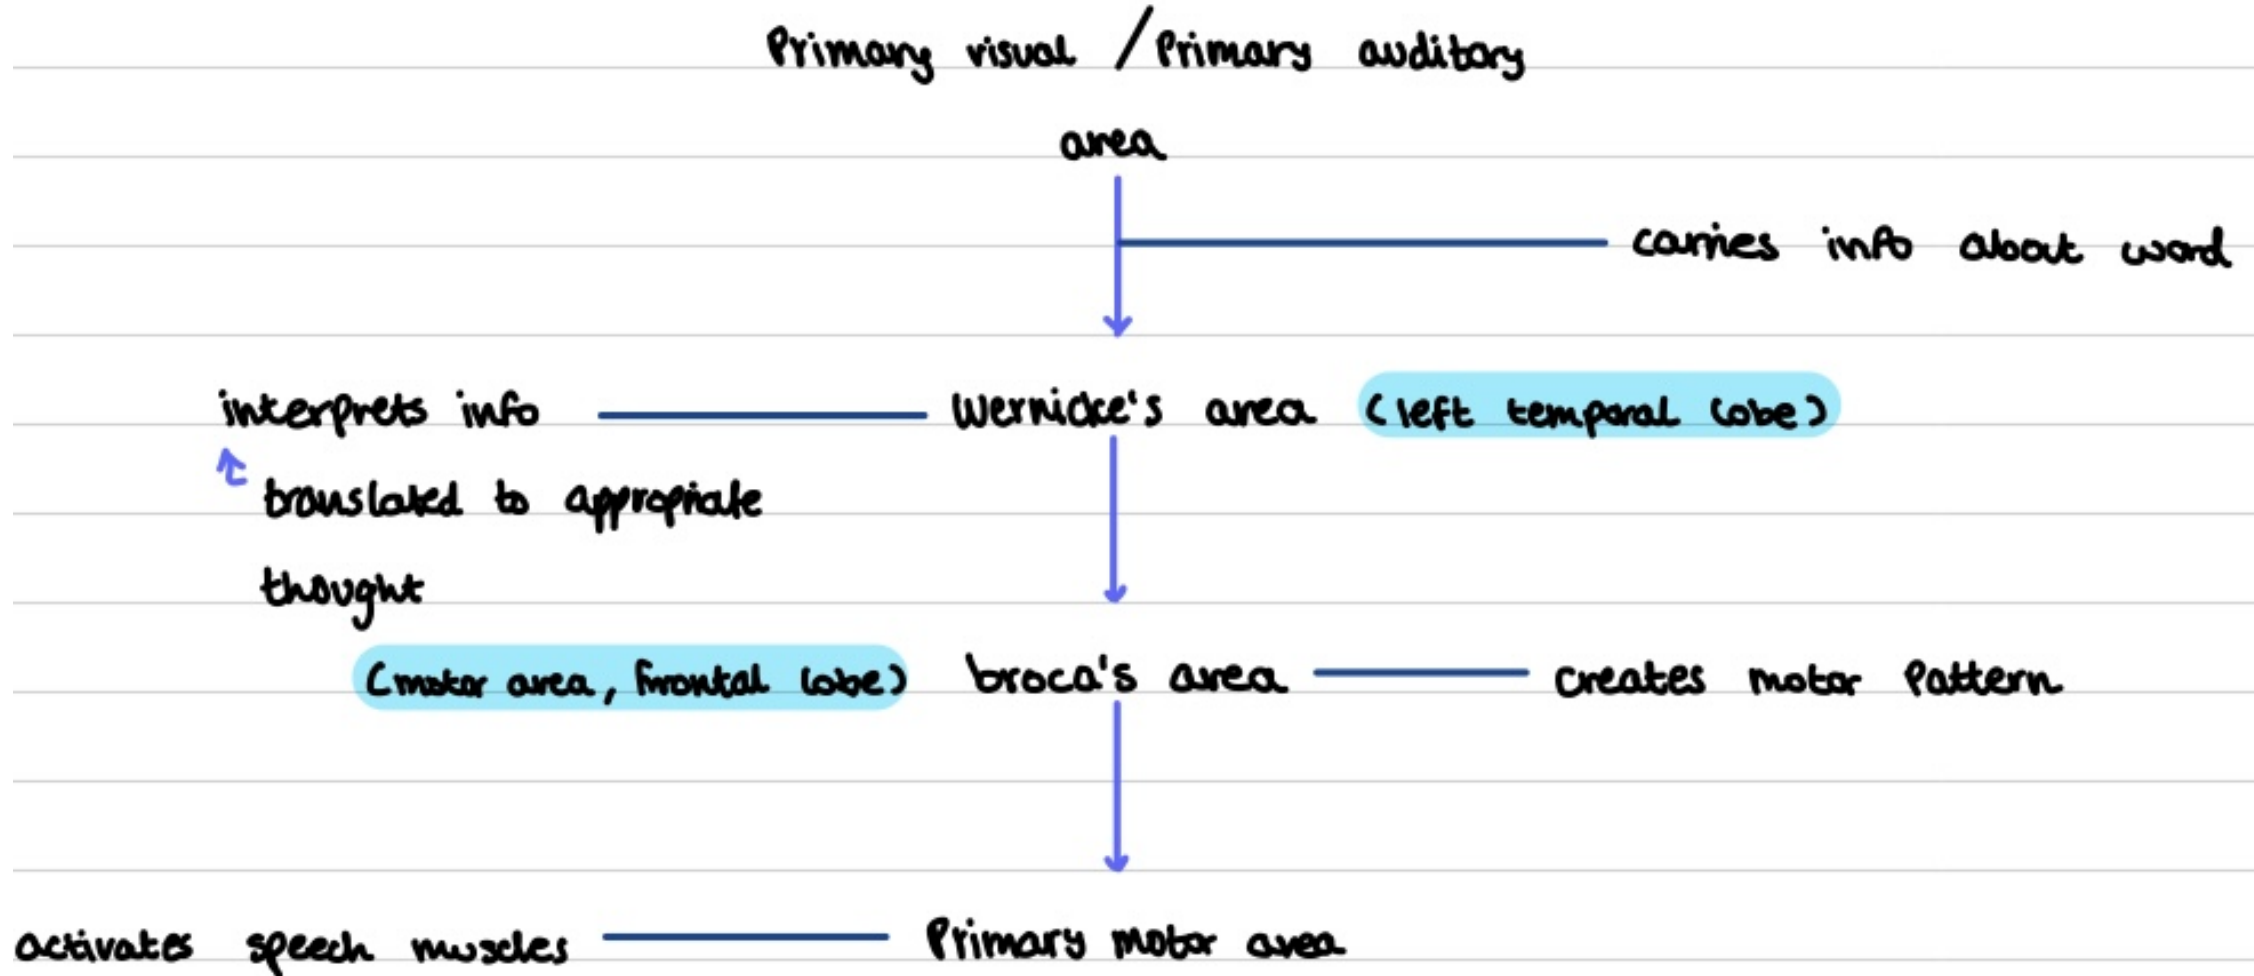 Primary visual / Primary auditory
area
carries info about word
interprets info
Wernicke's area (left temporal lobe)
translated to appropriate
thought
(motor area, frontal lobe) broca's area
creates motor Pattern
activates speech muscles
Primary motor area